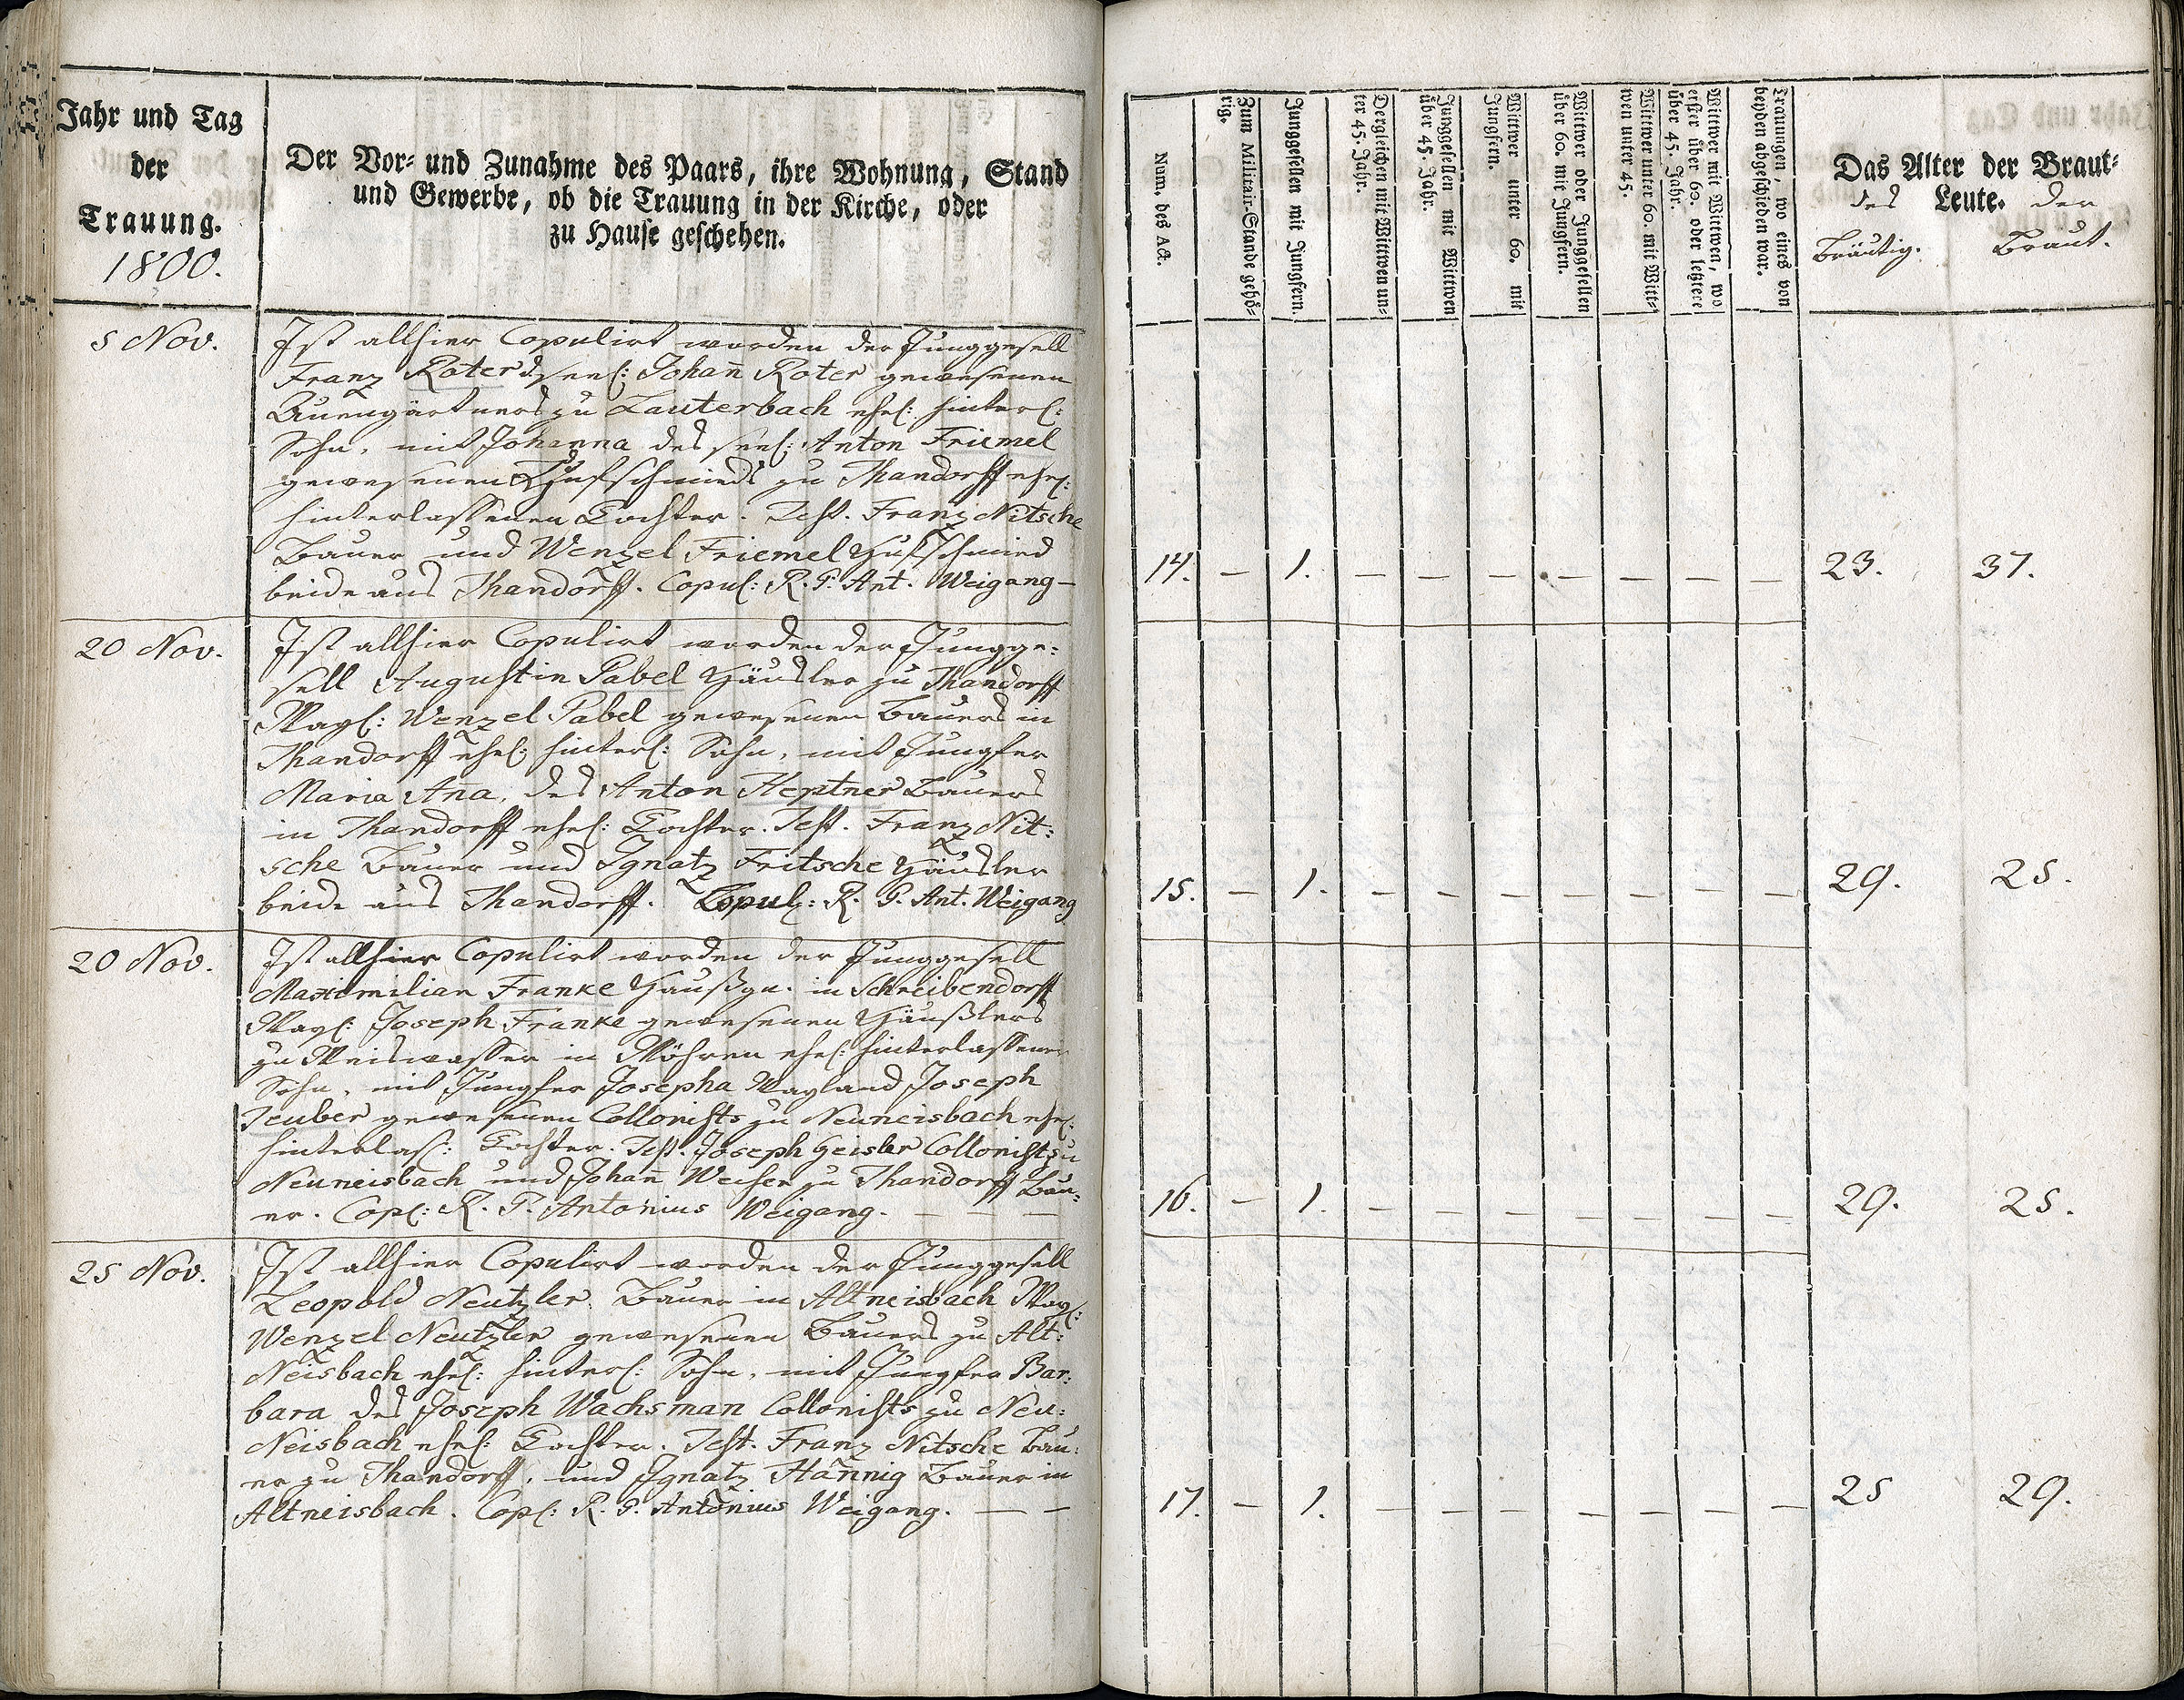 Jahr und Tag
der
Trauung.
1800.
Der Vor- und Zunahme des Paars, ihre Wohnung, Stand
und Gewerbe, ob die Trauung in der Kirche, oder
zu Hause geschehen.
Num. des Act.
Zum Militair-Stande gehö-
rig.
Junggesellen mit Jungfern.
Dergleichen mit Wittwen un-
ter 45. Jahr.
Junggesellen mit Wittwen
über 45. Jahr.
Wittwer unter 60. mit
Jungfern.
Wittwer oder Junggesellen
über 60. mit Jungfern.
Wittwer unter 60. mit Witt-
wen unter 45.
Wittwer mit Wittwen, wo
erster über 60. oder letztere
über 45. Jahr.
Trauungen, wo eines von
beyden abgeschieden war.
Das Alter der Braut-
des Leute. der
Bräutig. Braut.
5 Nov.
Ist allhier Copulirt worden der Junggesell
Franz Roter d seel: Johan̄ Roter gewesenen
Auengärtners zu Lauterbach ehel: hinterl:
Sohn, mit Johanna des seel: Anton Friemel
gewesenen Hufschmieds zu Thandorff ehel:
hinterlassenen Tochter. Test. Franz Nitsche
Bauer und Wenzel Friemel Hufschmied
beide aus Thandorff. Copul: R. P. Ant. Weigang —
14. — 1. — — — — — — — 23. 37.
20 Nov.
Ist allhier Copulirt worden der Jungge:
sell Augustin Pabel Häusler zu Thandorff
Wayl: Wenzel Pabel gewesenen Bauers in
Thandorff ehel: hinterl: Sohn, mit Jungfer
Maria An̄a, des Anton Heptner Bauers
in Thandorff ehel: Tochter. Test. Franz Nit:
sche Bauer und Ignatz Fritsche Häusler
beide aus Thandorff. Copul: R. P. Ant. Weigang
15. — 1. — — — — — — — 29. 25.
20 Nov.
Ist allhier Copulirt worden der Junggesell
Maximilian Franke in Schreibendorff
Wayl: Joseph Franke gewesenen Häußlers
zu Weiswasser in Möhren ehel: hinterlassener
Sohn, mit Jungfer Josepha Wayland Joseph
Teuber gewesenen Collonists zu Neuneisbach ehel:
hinterlas: Tochter. Test. Joseph Geisler Collonist zu
Neuneisbach und Johan̄ Weiser zu Thandorff Bau:
er. Copl: R. P. Antonius Weigang. — — —
16. — 1. — — — — — — — 29. 25.
25 Nov.
Ist allhier Copulirt worden der Junggesell
Leopold Neutzler Bauer in Altneisbach Wayl:
Wenzel Neutzler gewesenen Bauers zu Alt:
Neisbach ehel: hinterl: Sohn, mit Jungfer Bar:
bara des Joseph Wachsman Collonists zu Neu:
Neisbach ehel: Tochter. Test. Franz Nitsche Bau:
er zu Thandorff, und Ignatz Hannig Bauer in
Altneisbach. Copl: R. P. Antonius Weigang. — —
17. — 1. — — — — — — — 25 29.